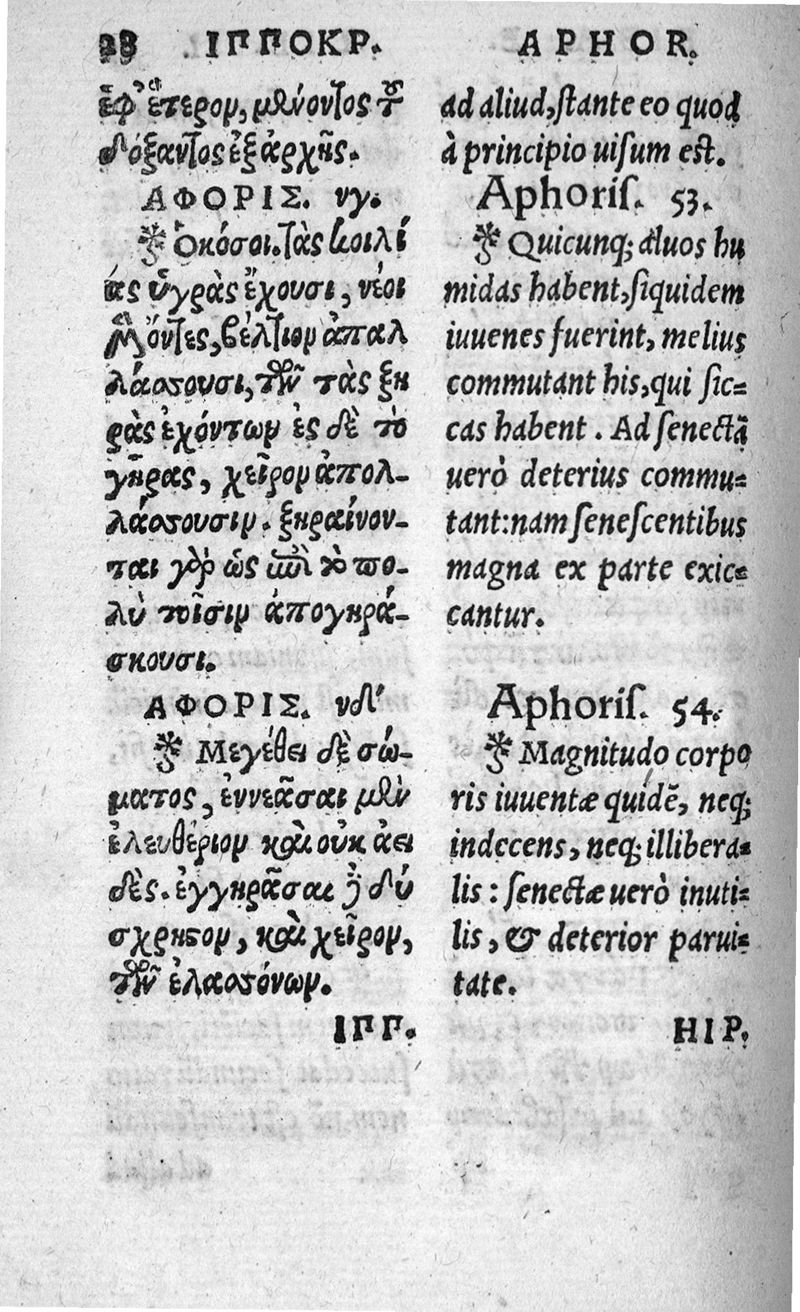 28 ΙΠΠΟΚΡ.
ἐφ' ἕτερον, μένοντος τοῦ
δόξαντος ἐξ ἀρχῆς.
ΑΦΟΡΙΣ. νγ.
Ὁκόσοι τὰς κοιλί
ας ὑγρὰς ἔχουσι, νέοι
μὲν ὄντες, βέλτιον ἀπαλ
λάσσουσι, τῶν τὰς ξη
ρὰς ἐχόντων ἐς δὲ τὸ
γῆρας, χεῖρον ἀπολ-
λάσσουσιν. ξηραίνον-
ται γὰρ ὡς ἐπὶ τὸ πο-
λὺ τοῖσιν ἀπογηρά-
σκουσι.
ΑΦΟΡΙΣ. νδ'
Μεγέθει δὲ σώ-
ματος, ἐννεᾶσαι μὲν
ἐλευθέριον καὶ οὐκ ἀει
δὲς. ἐγγηρᾶσαι δὲ δύ
σχρηστον, καὶ χεῖρον,
τῶν ἐλασσόνων.
ΙΠΠ.
APHOR.
ad aliud, stante eo quod
à principio uisum est.
Aphoris. 53.
Quicunq; aluos hu
midas habent, siquidem
iuuenes fuerint, melius
commutant his, qui sic=
cas habent. Ad senectā
uerò deterius commu=
tant: nam senescentibus
magna ex parte exic=
cantur.
Aphoris. 54.
Magnitudo corpo
ris iuuentæ quidē, neq;
indecens, neq; illibera=
lis: senectæ uerò inuti=
lis, & deterior parui=
tate.
HIP.